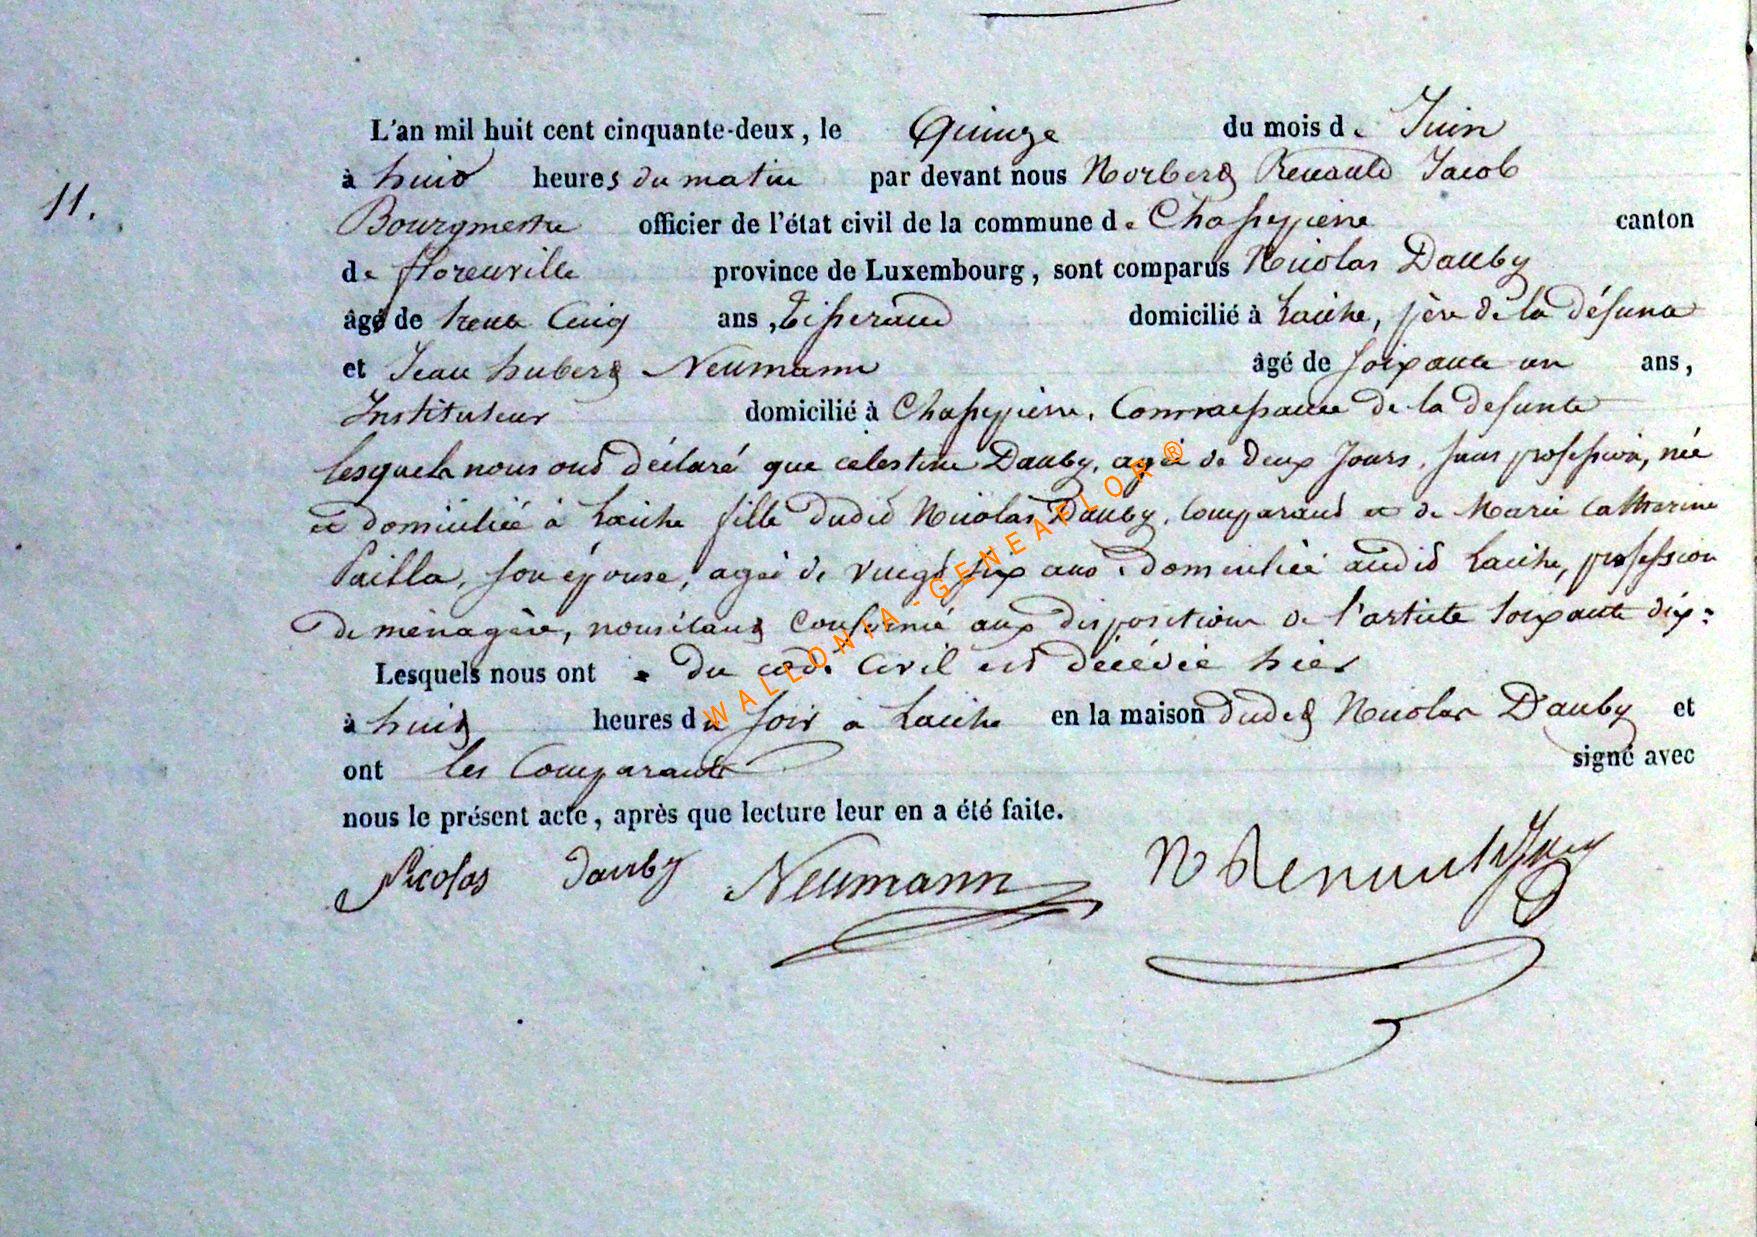 L'an mil huit cent cinquante-deux, le Quinze du mois de Juin
11.
à huit heures du matin par devant nous Norbert Renauld Jacob
Bourgmestre officier de l'état civil de la commune de Chassepierre canton
de florenville province de Luxembourg, sont comparus Nicolas Dauby
âgé de trente Cinq ans, tisserand domicilié à Laiche, père de la défunte
et Jean hubert Neumann âgé de soixante un ans,
Instituteur domicilié à Chassepierre, Connaissance de la defunte
lesquels nous ont déclaré que celestine Dauby, agée de deux Jours, sans profession, née
et domiciliée à Laiche fille dudit Nicolas Dauby, Comparant et de Marie Catherine
Pailla, son épouse, agée de vingt six ans, domiciliée audit Laiche, profession
de ménagère, nous étant Conformé aux dispositions de l'article soixante dix:
Lesquels nous ont du code Civil est décédée hier
à huit heures du soir à Laiche en la maison dudit Nicolas Dauby et
ont les Comparants signé avec
nous le présent acte, après que lecture leur en a été faite.
Nicolas Dauby Neumann N Renauld
WALLONIA-GENEAFLOR®